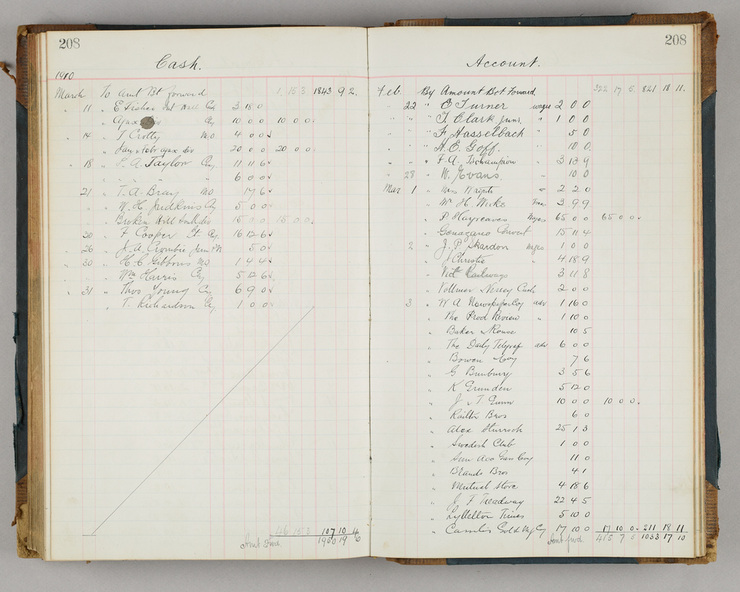 208
Cash.
1910
March To Amt Bt forward 1843 9 2
" 11 " E Fisher
Ajax Co 10 0 0 10 0 0
" 14 " J Crotty MO 4 0 0
20 0 0 20 0 0
" 18 " A Taylor Cq 11 11 6
" " " 6 0 0
" 21 " T. A. Bray MO 17 6
" W. H. Judkins Cq 5 0 0
Broken Hill 15 0 0 15 0 0
30 " F Cooper Cq 16 12 6
" 26 " J. A. Crombie 5 0
" 30 " H. C. Gibbons MO 1 4 4
" Wm Harris Cq 5 12 6
" 31 " Thos Young Cq 6 9 0
" T. Richardson Cq 1 0 0
107 10 4
Amt fwd
208
Account.
Feb By Amount Bot Forward 17 821 18 11
" 22 " E Turner wages 2 0 0
" " J Clark Junr " 1 0 0
" " F Hasselbach 5 0
" " H. C. Goff. 10 0
" " F. A. 3 13 9
" 28 " W. Evans. 10 0
Mar 1 " Miss Wright 2 2 0
" W H Wike 3 9 9
" P Haysraves Wages 65 0 0 65 0 0
" 15 11 4
" 2 " J. P. Skardon wages 1 0 0
" J Christie " 4 18 9
" Vic Railways 3 11 8
" Vollmer Cash 2 0 0
" 3 " W A Newspaper Coy adv 1 16 0
" The Prod Review " 1 10 0
" Baker & Rouse 10 5
" The Daily Telegraf adv 6 0 0
" Bowen Coy 7 6
" G Bunbury 3 5 6
" K Grunden 5 12 0
" J. T. Gunn 10 0 0 10 0 0
" Railton Bros 6 0
" Alex 25 1 3
" Swedish Club 1 0 0
" Sun Ace Gas Coy 11 0
" Brands Bros 4 1
" Mutual Store 4 18 6
" J. F Treadway 22 4 5
" Lyttelton Times 5 10 0
" Gold Mg Cy 17 10 0 17 10 0 211 18 11
Amt fwd 415 7 6 1033 17 10